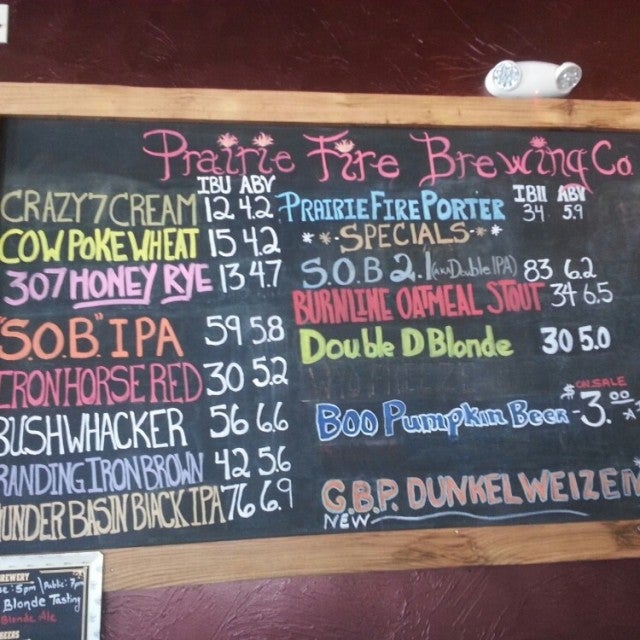 Prairie Fire Brewing Co
IBU ABV
CRAZY 7 CREAM 12 4.2
COWPOKE WHEAT 15 4.2
307 HONEY RYE 13 4.7
"S.O.B." IPA 59 5.8
IRON HORSE RED 30 5.2
BUSHWHACKER 56 6.6
RANDING IRON BROWN 42 5.6
UNDER BASIN BLACK IPA 76 6.9
IBU ABV
PRAIRIE FIRE PORTER 34 5.9
SPECIALS
S.O.B 2.1 (AKA Double IPA) 83 6.2
BURNLINE OATMEAL STOUT 34 6.5
Double D Blonde 30 5.0
ON SALE
Boo Pumpkin Beer - $3.00
G.B.P. DUNKELWEIZEN
NEW
BREWERY
5pm \ Public: 7pm
Blonde Tasting
Blonde Ale
BEERS